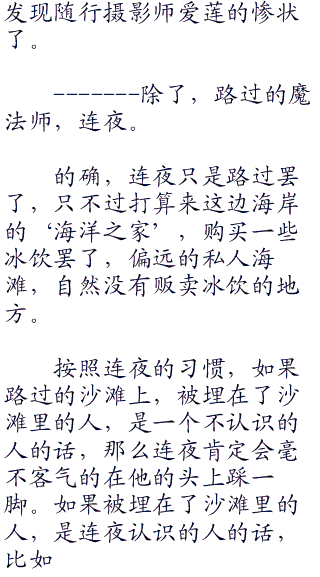 发现随行摄影师爱莲的惨状
了。
-------除了，路过的魔
法师，连夜。
的确，连夜只是路过罢
了，只不过打算来这边海岸
的‘海洋之家’，购买一些
冰饮罢了，偏远的私人海
滩，自然没有贩卖冰饮的地
方。
按照连夜的习惯，如果
路过的沙滩上，被埋在了沙
滩里的人，是一个不认识的
人的话，那么连夜肯定会毫
不客气的在他的头上踩一
脚。如果被埋在了沙滩里的
人，是连夜认识的人的话，
比如